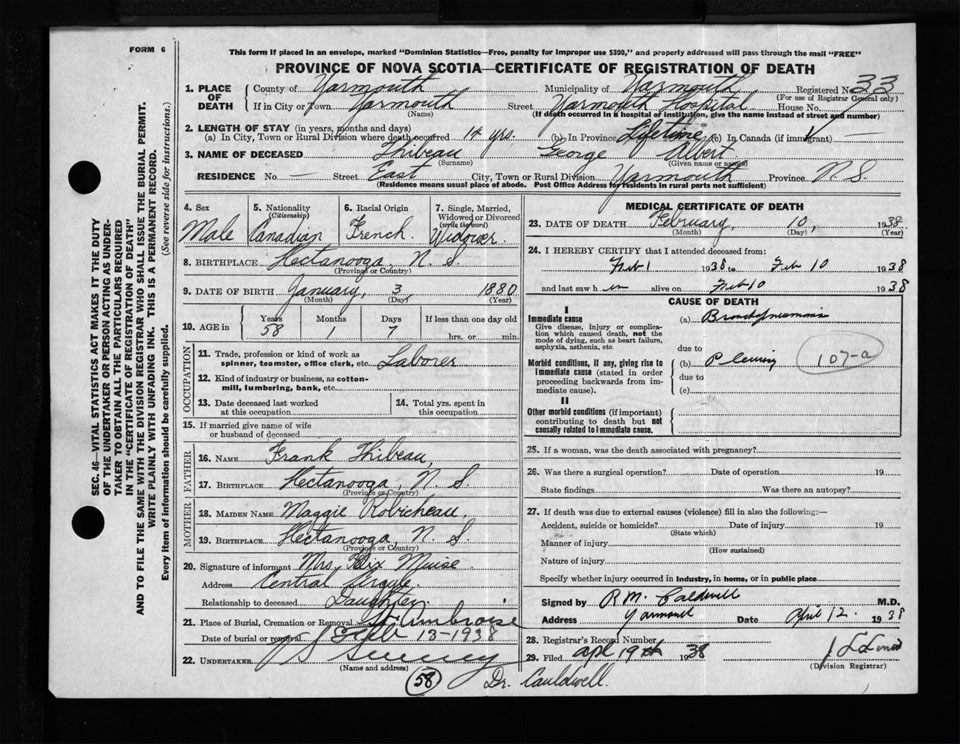 FORM 6
This form if placed in an envelope, marked "Dominion Statistics—Free, penalty for improper use $300," and properly addressed will pass through the mail "FREE"
PROVINCE OF NOVA SCOTIA—CERTIFICATE OF REGISTRATION OF DEATH
1. PLACE OF DEATH
County of Yarmouth Municipality of Yarmouth Registered No. 33
(For use of Registrar General only)
If in City or Town Yarmouth Street Yarmouth Hospital House No.
(If death occurred in a hospital or institution, give the name instead of street and number)
2. LENGTH OF STAY (in years, months and days)
(a) In City, Town or Rural Division where death occurred 14 yrs. (b) In Province Lifetime (c) In Canada (if immigrant)
3. NAME OF DECEASED Thibeau George Albert
(Surname) (Given name or names)
RESIDENCE No. — Street East City, Town or Rural Division Yarmouth Province N.S.
(Residence means usual place of abode. Post Office Address for residents in rural parts not sufficient)
SEC. 46—VITAL STATISTICS ACT MAKES IT THE DUTY
OF THE UNDERTAKER OR PERSON ACTING AS UNDER-
TAKER TO OBTAIN ALL THE PARTICULARS REQUIRED
IN THE "CERTIFICATE OF REGISTRATION OF DEATH"
AND TO FILE THE SAME WITH THE DIVISION REGISTRAR WHO SHALL ISSUE THE BURIAL PERMIT.
WRITE PLAINLY WITH UNFADING INK. THIS IS A PERMANENT RECORD.
Every item of information should be carefully supplied. (See reverse side for instructions.)
4. Sex
Male
5. Nationality
(Citizenship)
Canadian
6. Racial Origin
French.
7. Single, Married, Widowed or Divorced
(write the word)
Widower.
8. BIRTHPLACE Hectanooga, N. S.
(Province or Country)
9. DATE OF BIRTH January, 3 1880
(Month) (Day) (Year)
10. AGE in
Years Months Days If less than one day old
58 1 7 hrs. or min.
OCCUPATION
11. Trade, profession or kind of work as
spinner, teamster, office clerk, etc. Laborer
12. Kind of industry or business, as cotton-
mill, lumbering, bank, etc.
13. Date deceased last worked
at this occupation
14. Total yrs. spent in
this occupation
15. If married give name of wife
or husband of deceased
FATHER
16. NAME Frank Thibeau,
17. BIRTHPLACE Hectanooga, N. S.
(Province or Country)
MOTHER
18. MAIDEN NAME Maggie Robicheau,
19. BIRTHPLACE Hectanooga, N. S.
(Province or Country)
20. Signature of informant Mrs. Muise
Address Central Argyle.
Relationship to deceased Daughter
21. Place of Burial, Cremation or Removal St. Ambroise
Date of burial or removal Feb 13-1938
22. UNDERTAKER Sweeney
(Name and address)
58
Dr. Cauldwell.
MEDICAL CERTIFICATE OF DEATH
23. DATE OF DEATH February, 10, 1938
(Month) (Day) (Year)
24. I HEREBY CERTIFY that I attended deceased from:
Feb 1 1938 to Feb 10 1938
and last saw him alive on Feb 10 1938
CAUSE OF DEATH
I
Immediate cause
Give disease, injury or complica-
tion which caused death, not the
mode of dying, such as heart failure,
asphyxia, asthenia, etc.
(a) Bronchopneumonia
due to
Morbid conditions, if any, giving rise to
immediate cause (stated in order
proceeding backwards from im-
mediate cause).
(b) Pleurisy
107-a
due to
(c)
II
Other morbid conditions (if important)
contributing to death but not
causally related to immediate cause.
25. If a woman, was the death associated with pregnancy?
26. Was there a surgical operation? Date of operation 19
State findings Was there an autopsy?
27. If death was due to external causes (violence) fill in also the following:—
Accident, suicide or homicide? Date of injury 19
(State which)
Manner of injury
(How sustained)
Nature of injury
Specify whether injury occurred in industry, in home, or in public place
Signed by R M. Caldwell M.D.
Address Yarmouth Date April 12 1938
28. Registrar's Record Number
29. Filed Apl 19th 1938
(Division Registrar)